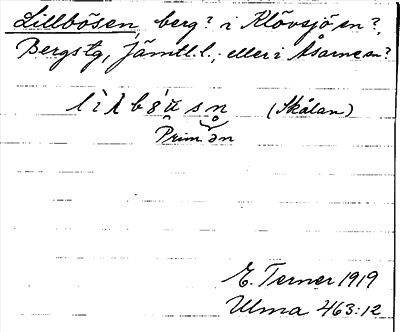 Lillbösen, berg? i Klövsjö sn?,
Bergs tg, Jämtl. l., eller i Åsarne sn?
(Skålan)
Prim ån
E. Terner 1919
Ulma 463:12